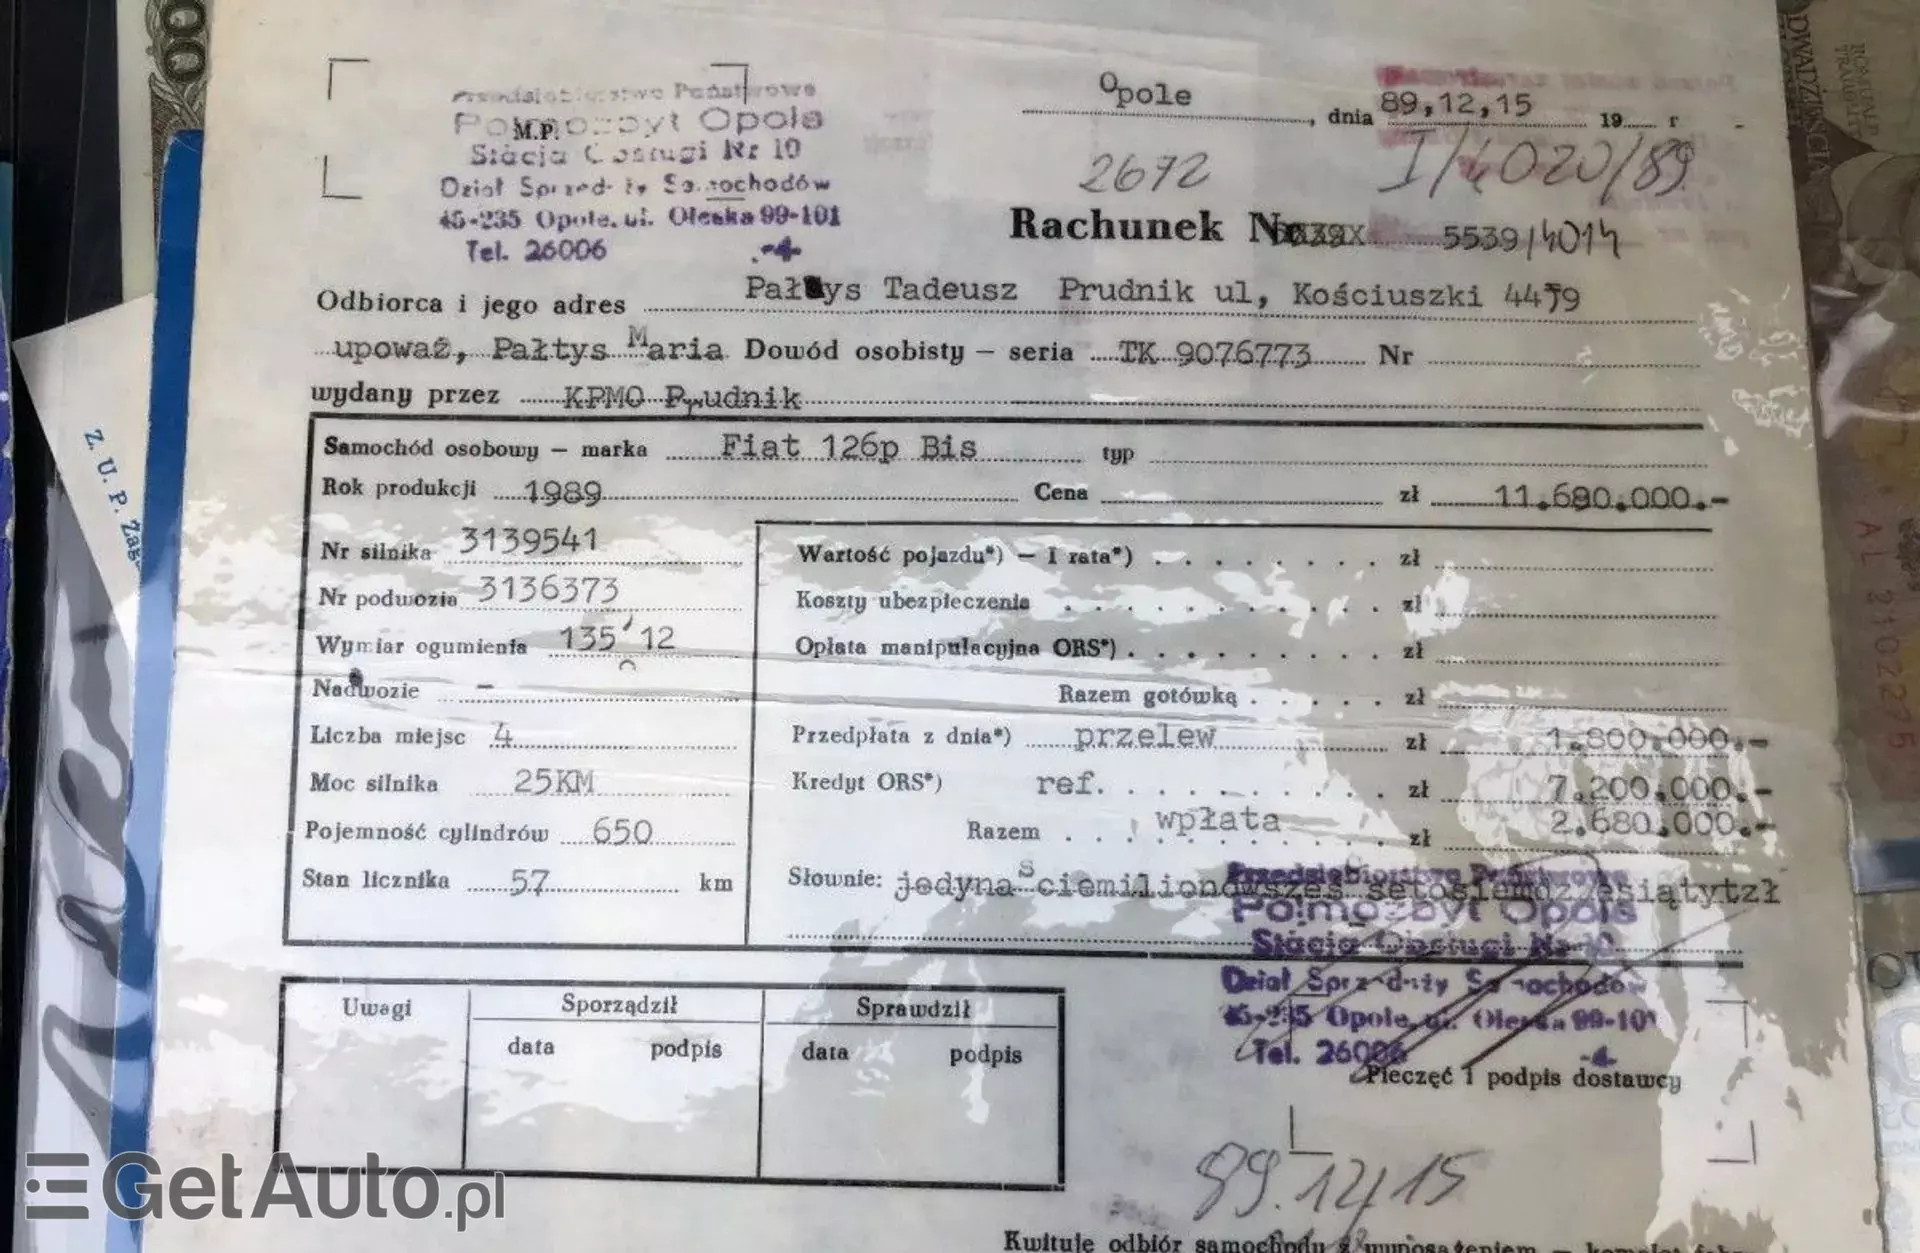 Przedsiębiorstwo Państwowe
Polmozbyt Opole
M.P.
Stacja Obsługi Nr 10
Dział Sprzedaży Samochodów
45-235 Opole, ul. Oleska 99-101
Tel. 26006 -4-
Opole, dnia 89,12,15 19 r
2672 I/4020/89
Rachunek Nr 5539/4014
Odbiorca i jego adres Pałtys Tadeusz Prudnik ul, Kościuszki
upoważ, Pałtys Maria Dowód osobisty – seria TK 9076773 Nr
wydany przez KPMO Prudnik
Samochód osobowy – marka Fiat 126p Bis typ
Rok produkcji 1989 Cena zł 11.680.000.-
Nr silnika 3139541
Nr podwozia 3136373
Wymiar ogumienia 135 12
Nadwozie -
Liczba miejsc 4
Moc silnika 25KM
Pojemność cylindrów 650
Stan licznika 57 km
Wartość pojazdu*) – I rata*) zł
Koszty ubezpieczenia zł
Opłata manipulacyjna ORS*) zł
Razem gotówką zł
Przedpłata z dnia*) przelew zł 1.800.000.-
Kredyt ORS*) ref. zł 7.200.000.-
Razem wpłata zł 2.680.000.-
Słownie:
Przedsiębiorstwo Państwowe
Polmozbyt Opole
Stacja Obsługi Nr 10
Dział Sprzedaży Samochodów
45-235 Opole, ul. Oleska 99-101
Tel. 26006 -4-
Pieczęć i podpis dostawcy
Uwagi Sporządził Sprawdził
data podpis data podpis
89.12.15
Kwituję odbiór samochodu z wyposażeniem –
Z. U. P. Zag
AL 2102275
GetAuto.pl